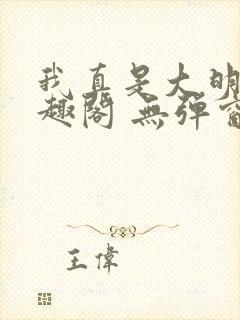 我真是大明
趣阁 無弹窗
王偉